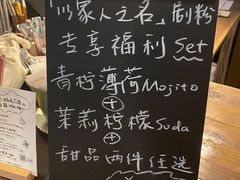 「以家人之名」剧粉
专享福利 Set
青柠薄荷Mojito
+
茉莉柠檬Soda
+
甜品两件任选